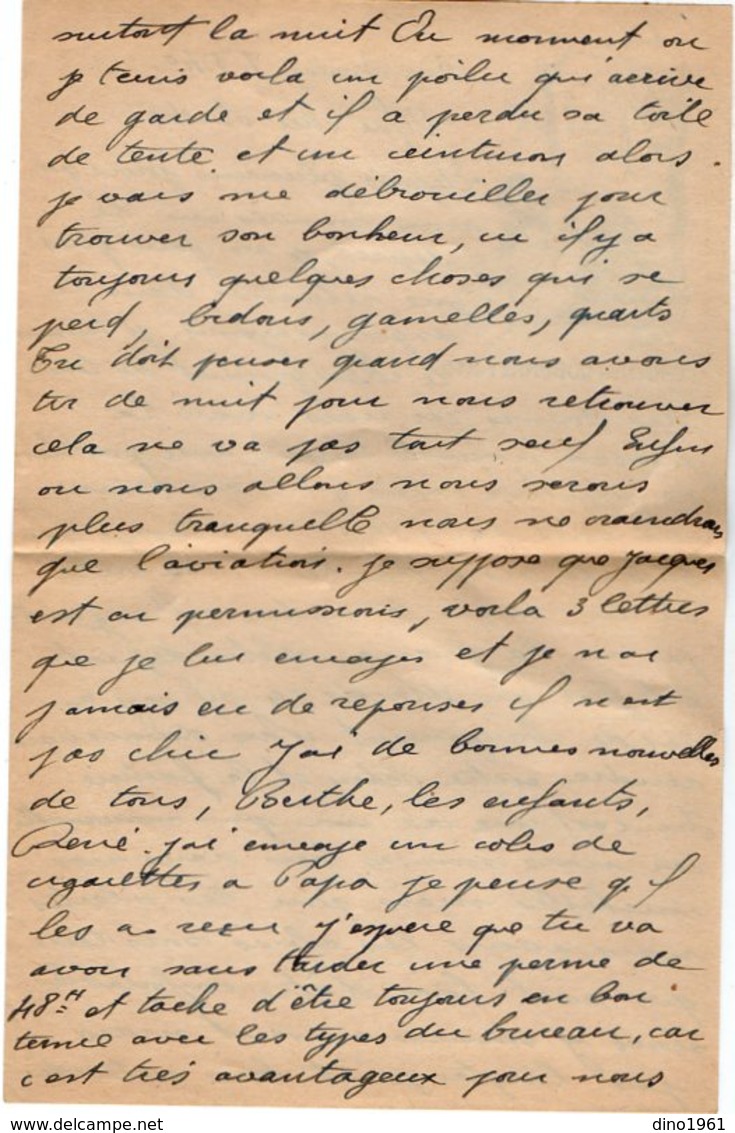 surtout la nuit Au moment où
je viens voila un poilu qui arrive
de garde et il a perdu sa toile
de tente et un ceinturon alors.
je vais me débrouiller pour
trouver son bonheur, il y a
toujours quelques choses qui se
perd, bidons, gamelles, quarts
Tu doit penser quand nous avons
tir de nuit pour nous retrouver
cela ne va pas tout seul Enfin
ou nous allons nous serons
plus tranquelle nous ne craindrons
que l'aviation. je suppose que Jacques
est en permissions, voila 3 lettres
que je lui envoyes et je n'ai
jamais eu de reponses il n'est
pas chic J'ai de bonnes nouvelles
de tous, Berthe, les enfants,
René. j'ai envoye un colis de
cigarettes a Papa je pense qu'il
les a recu j'espere que tu va
avoir sans tarder une perme de
48 H et tache d'être toujours en bon
terme avec les types du bureau, car
c est très avantageux pour nous
dino1961